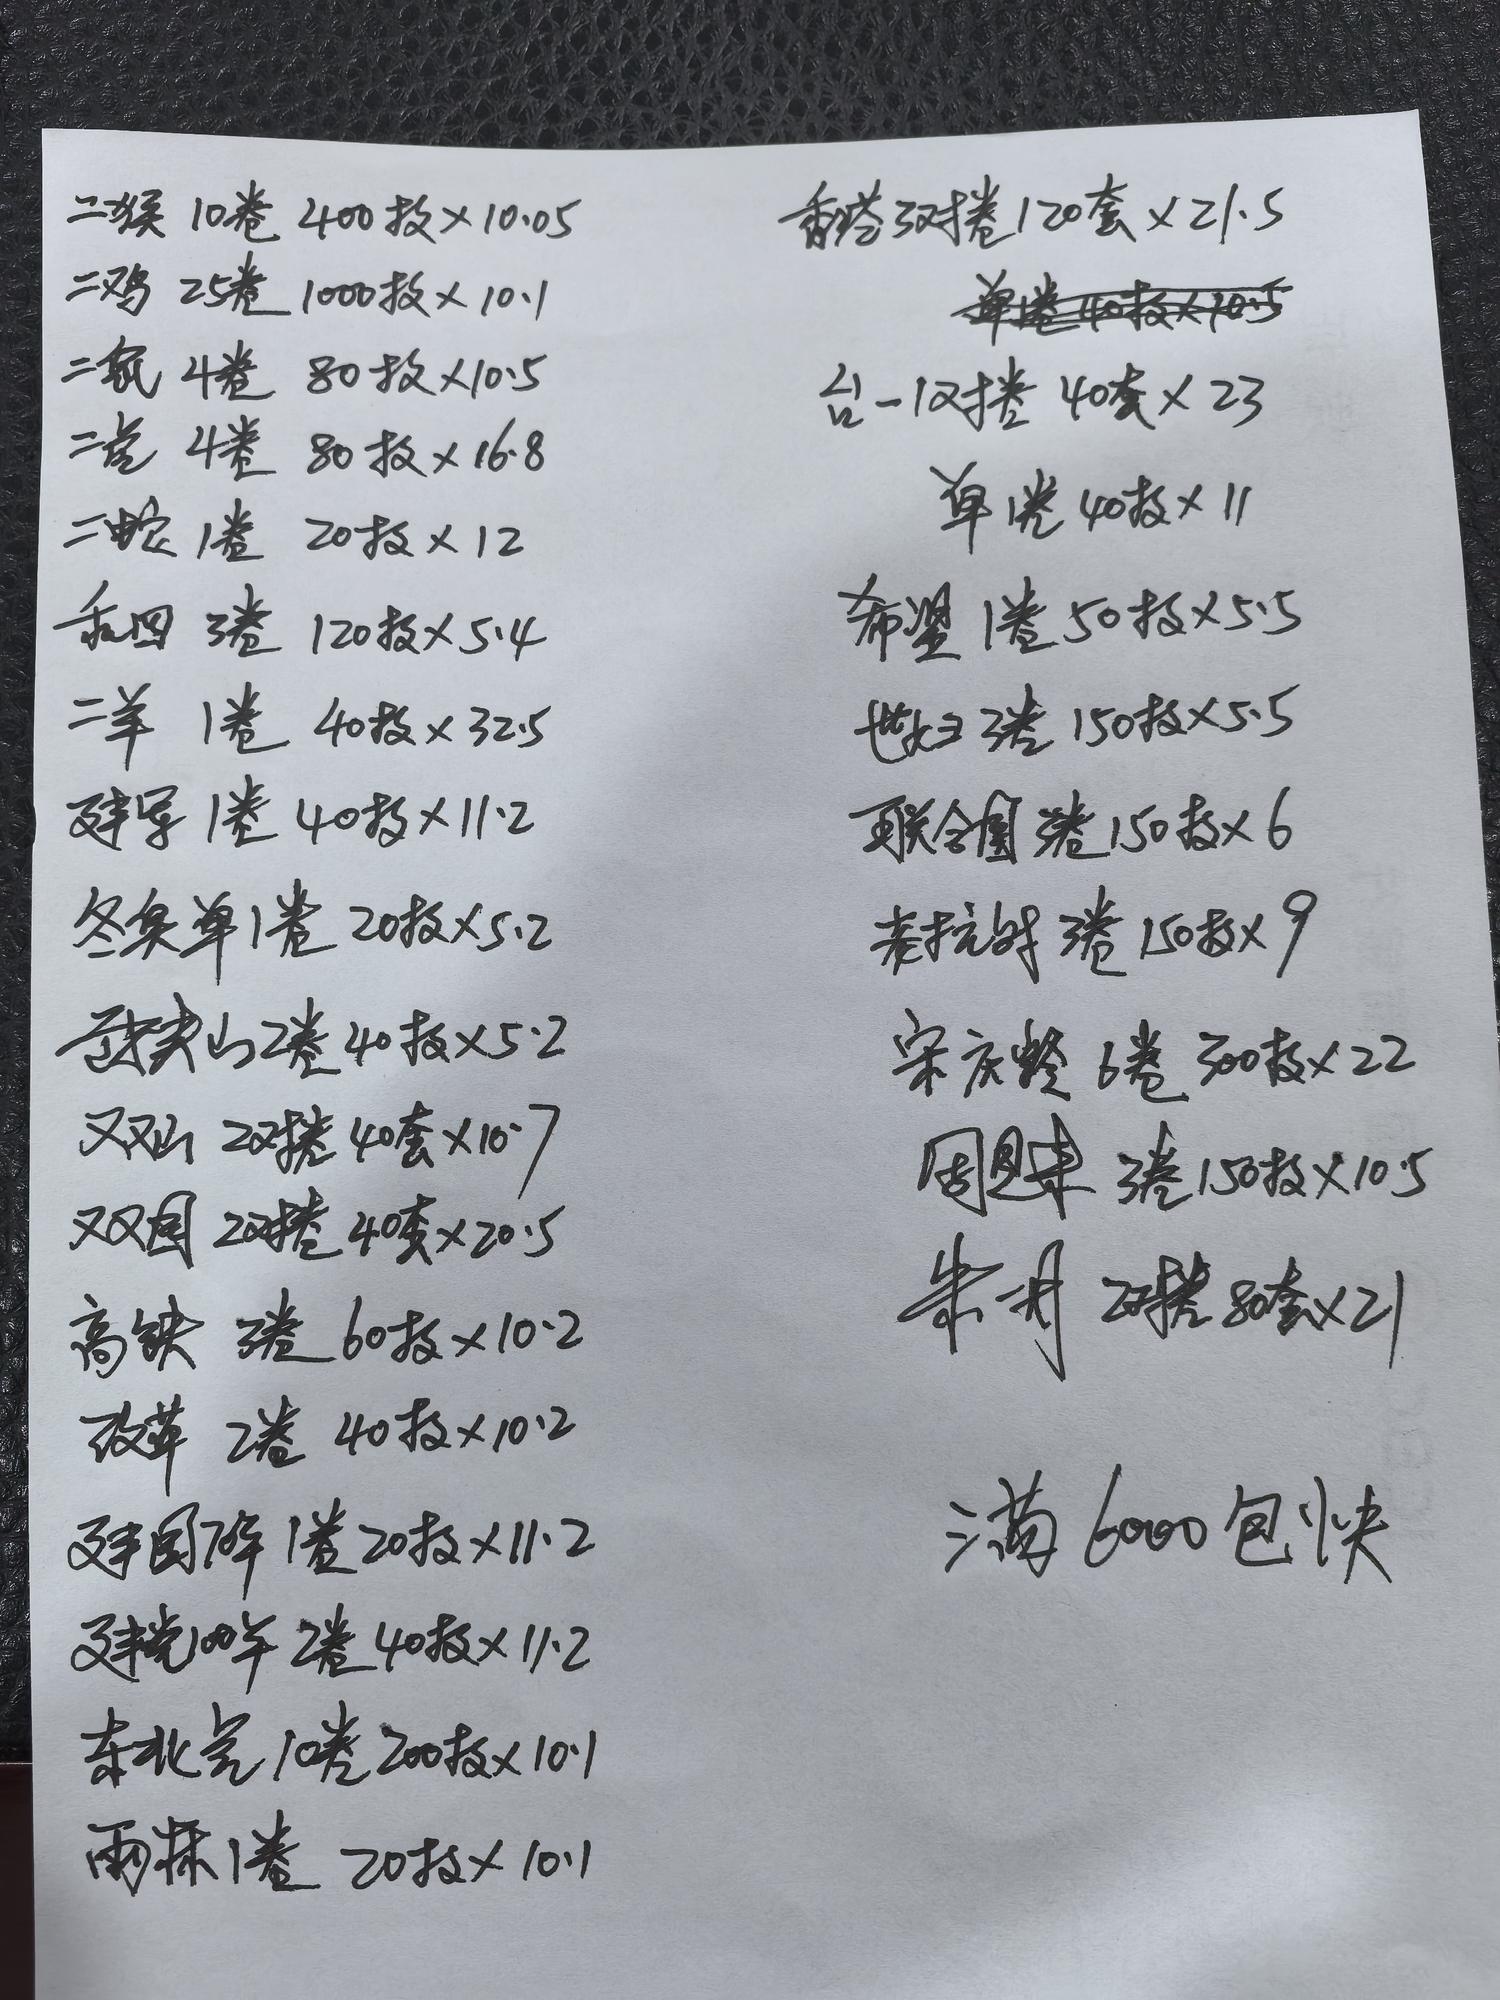 二猴 10卷 400枚×10.05
二鸡 25卷 1000枚×10.1
二鼠 4卷 80枚×10.5
二虎 4卷 80枚×16.8
二蛇 1卷 20枚×12
和四 3卷 120枚×5.4
二羊 1卷 40枚×32.5
建军 1卷 40枚×11.2
冬奥单1卷 20枚×5.2
武夷山2卷40枚×5.2
双山 2对捲40套×10.7
双国 2对捲40套×20.5
高铁 3卷60枚×10.2
改革 2卷 40枚×10.2
建国70年 1卷20枚×11.2
建党100年 2卷40枚×11.2
东北虎10卷200枚×10.1
雨林1卷 20枚×10.1
香塔3对捲120套×21.5
单1卷40枚×10.5
台一1对捲 40套×23
单1卷 40枚×11
希望 1卷50枚×5.5
世妇 3卷150枚×5.5
联合国 3卷150枚×6
老抗战 3卷150枚×9
宋庆龄 6卷 300枚×22
周恩来 3卷150枚×10.5
朱 2对捲80套×21
满6000包快